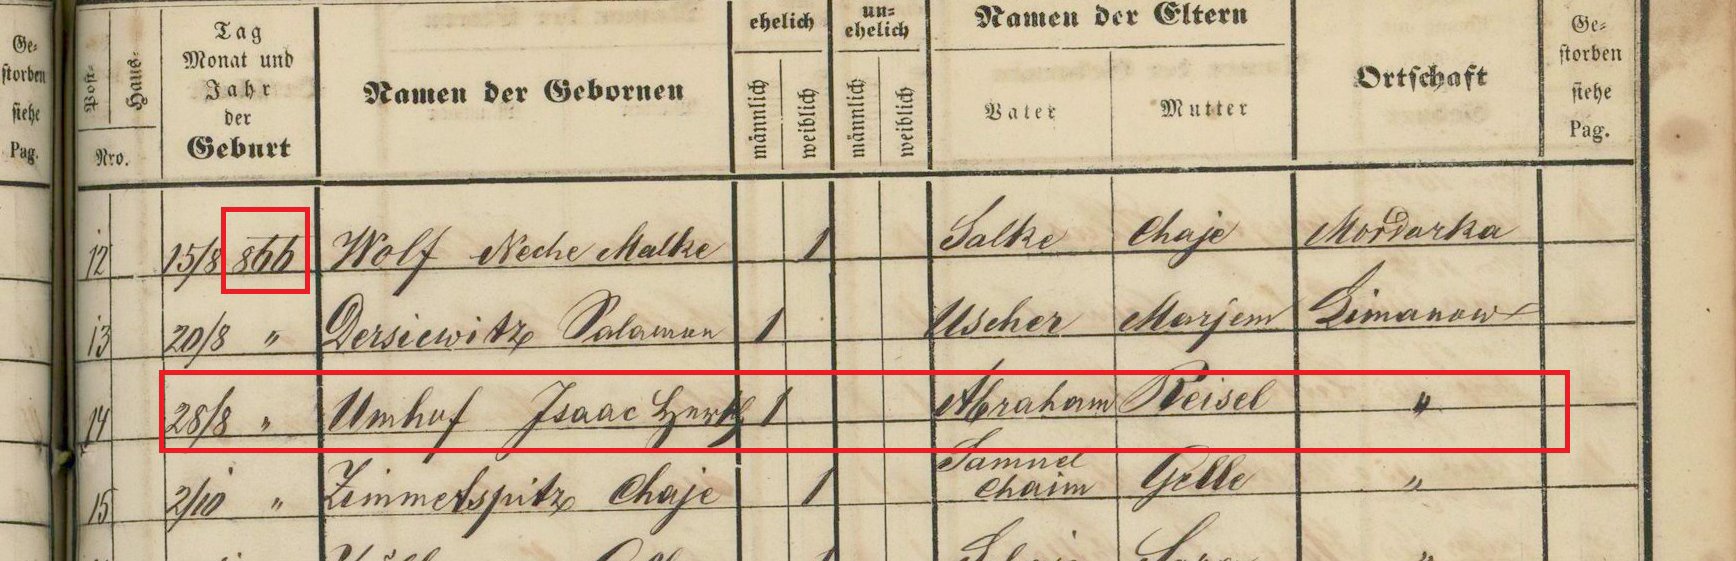 Ge-
storben
siehe
Pag.
Post-
Haus-
Nro.
Tag
Monat und
Jahr
der
Geburt
Namen der Gebornen
ehelich
männlich
weiblich
un-
ehelich
männlich
weiblich
Namen der Eltern
Vater
Mutter
Ortschaft
Ge-
storben
siehe
Pag.
12 15/8 866 Wolf Neche Malke 1 Salke Chaje Mordarka
13 20/8 " Dersiewitz Salamon 1 Uscher Marjem Limanow
14 28/8 " Umhof Isaac Hersch 1 Abraham Reisel "
15 2/10 " Zimmetspitz Chaje 1 Samuel Chaim Gelle "